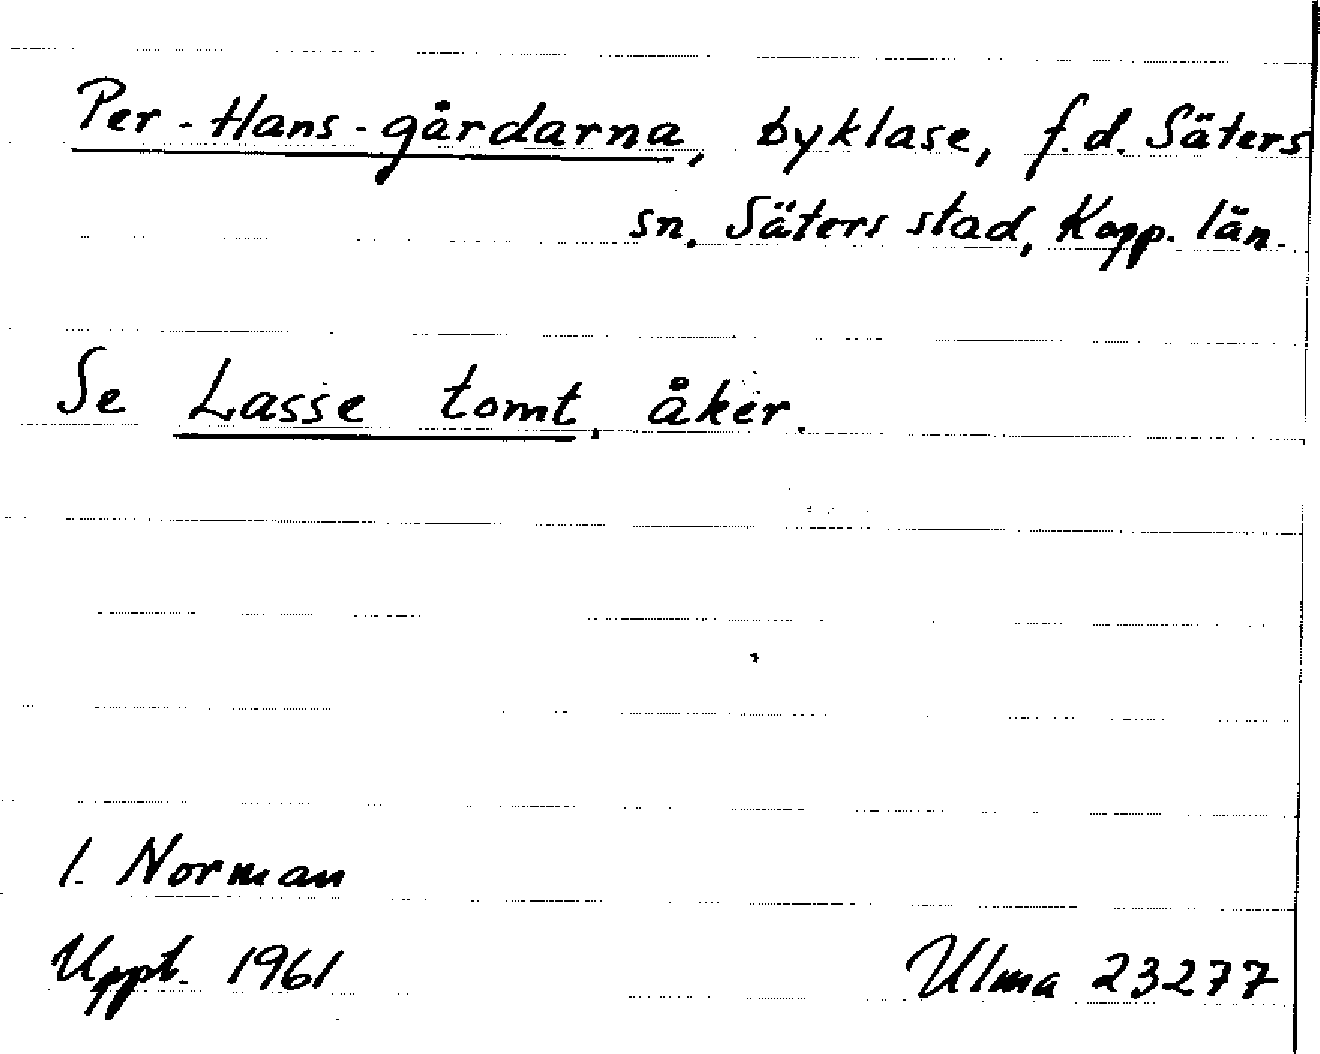 Per-Hans-gårdarna, byklase, f.d. Säters
sn, Säters stad, Kopp. län.
Se Lasse tomt, åker.
I. Norman
Uppt. 1961 Ulma 23277